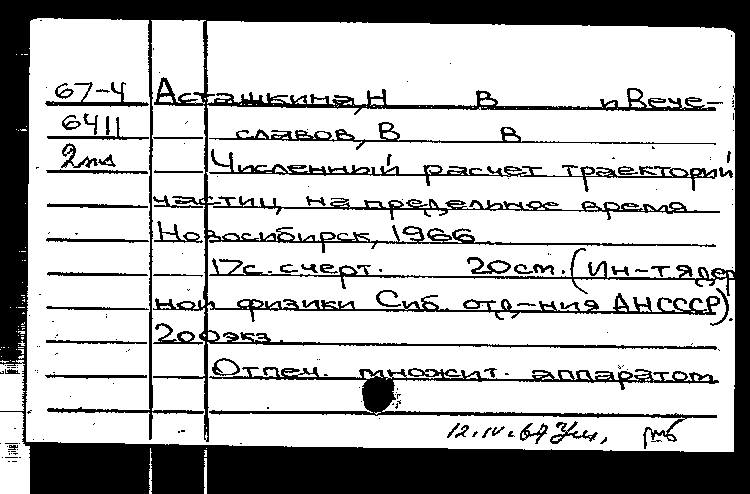 67-4 Асташкина, Н В и Вече-
6411 славов, В В
2 Численный расчет траекторий
частиц на предельное время
Новосибирск, 1966
17с. с черт. 20 см. (Ин-т ядер
ной физики Сиб. отд-ния АН СССР).
200 экз.
Отпеч. множит. аппаратом
12.IV.67